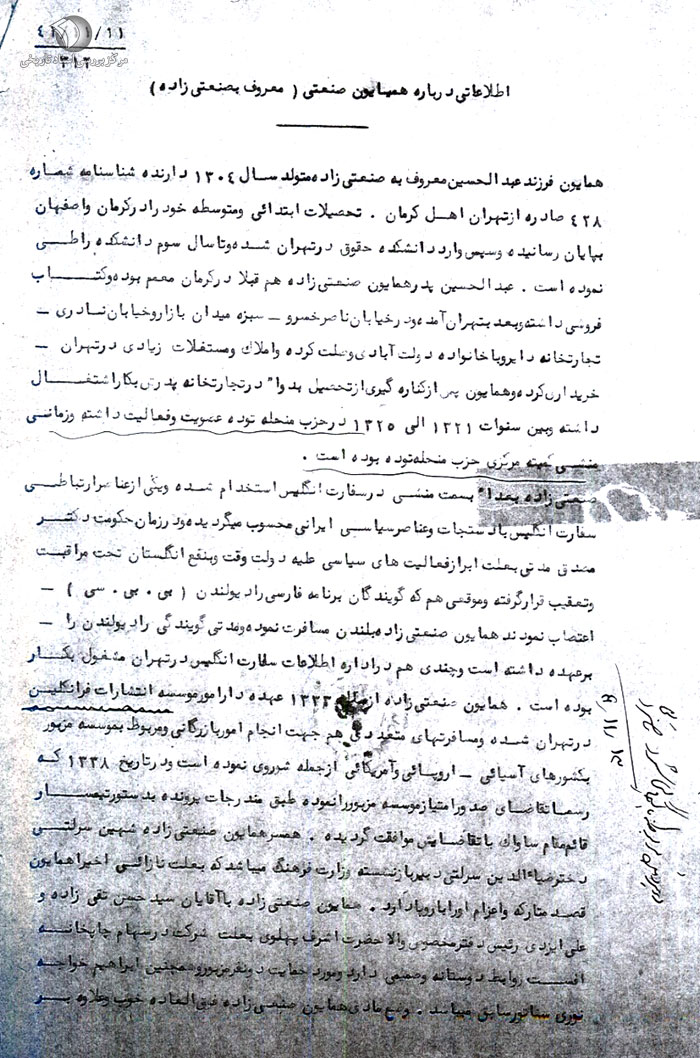 ۴۱/۱۱/۱۱
۳۱۳
مرکز بررسی اسناد تاریخی
اطلاعاتی درباره همایون صنعتی ( معروف بصنعتی زاده )
همایون فرزند عبدالحسین معروف به صنعتی زاده متولد سال ۱۳۰۴ دارنده شناسنامه شماره
۴۲۸ صادره از تهران اهل کرمان . تحصیلات ابتدائی ومتوسطه خود رادرکرمان واصفهان
بپایان رسانیده وسپس وارد دانشکده حقوق درتهران شده وتا سال سوم دانشکده راطی
نموده است . عبدالحسین پدرهمایون صنعتی زاده هم قبلا درکرمان معمم بوده وکتاب
فروشی داشته وبعد بتهران آمده ودرخیابان ناصرخسرو - سبزه میدان بازاروخیابان نادری -
تجارتخانه دایروباخانواده دولت آبادی وصلت کرده واملاک ومستغلات زیادی درتهران -
خریداری کرده وهمایون پس ازکناره گیری ازتحصیل بدوا" درتجارتخانه پدرش بکاراشتغال
داشته وبین سنوات ۱۳۲۱ الی ۱۳۲۵ درحزب منحله توده عضویت وفعالیت داشته وزمانی
منشی کمیته مرکزی حزب منحله توده بوده است .
صنعتی زاده بعدا" بسمت منشی درسفارت انگلیس استخدام شده ویکی ازعناصرارتباطی
سفارت انگلیس بادستجات وعناصرسیاسی ایرانی محسوب میگردیده ودرزمان حکومت دکتر
مصدق مدتی بعلت ابرازفعالیت های سیاسی علیه دولت وقت وبنفع انگلستان تحت مراقبت
وتعقیب قرارگرفته وموقعی هم که گویندگان برنامه فارسی رادیولندن ( بی . بی . سی ) -
اعتصاب نمودند همایون صنعتی زاده بلندن مسافرت نموده ومدتی گویندگی رادیولندن را -
برعهده داشته است وچندی هم دراداره اطلاعات سفارت انگلیس درتهران مشغول بکار
بوده است . همایون صنعتی زاده ازسال ۱۳۳۳ عهده دارامورموسسه انتشارات فرانکلین
درتهران شده ومسافرتهای متعددی هم جهت انجام اموربازرگانی ومربوط بموسسه مزبور
بکشورهای آسیائی - اروپائی وآمریکائی ازجمله شوروی نموده است ودرتاریخ ۱۳۳۸ که
رسما تقاضای صدورامتیازموسسه مزبوررانموده طبق مندرجات پرونده بدستورتیمسار
قائم مقام ساواک باتقاضایش موافقت گردیده . همسرهمایون صنعتی زاده شهین سرلتی
دخترضیاءالدین سرلتی دبیربازنشسته وزارت فرهنگ میباشد که بعلت نازائی اخیراهمایون
قصد متارکه واعزام اورابا روپا دارد . همایون صنعتی زاده باآقایان سید حسن تقی زاده و
علی ایزدی رئیس دفترمخصوص والاحضرت اشرف پهلوی بعلت شرکت درسهام چاپخانه
افست روابط دوستانه وصمیمی دارد ومورد حمایت دونفرمزبوروهمچنین ابراهیم خواجه
نوری سناتورسابق میباشد . وضع مادی همایون صنعتی زاده فوق العاده خوب وعلاوه بر